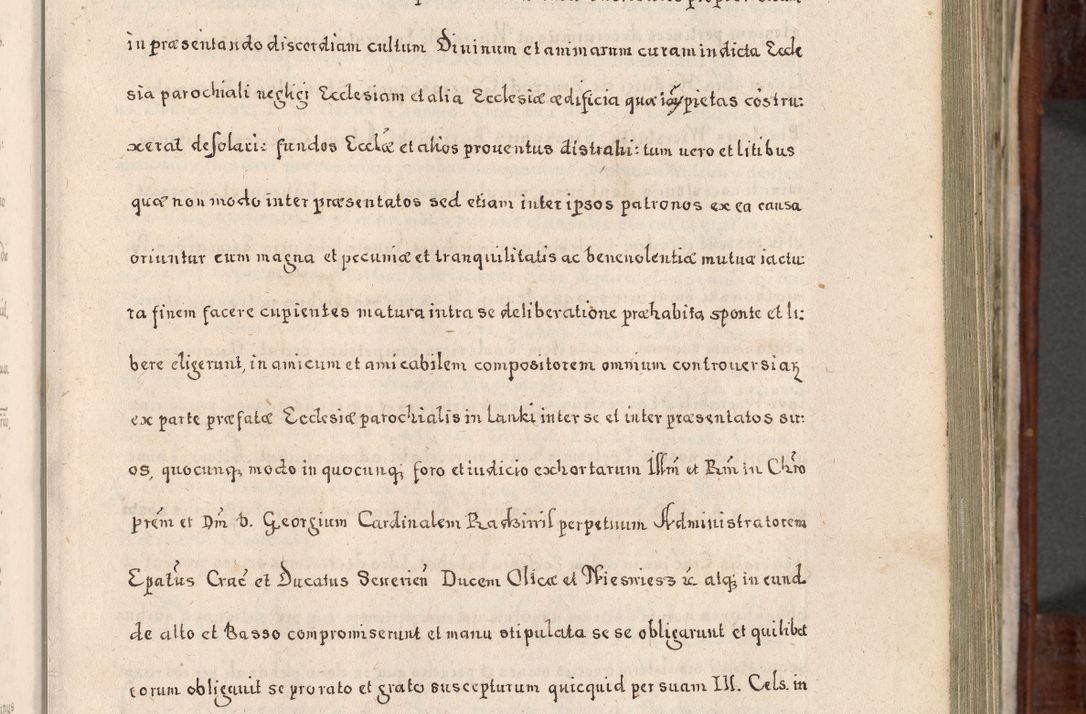 in præsentando discordiam cultum Diuinum et animarum curam in dicta Eccle
sia parochiali negligi Ecclesiam et alia Ecclesiæ ædificia quæ pietas cõstru:
xerat desolari: fundos Ecclæ̃ et alios prouentus distrahi: tum uero et litibus
quæ non modo inter præsentatos sed etiam inter ipsos patronos ex ea causa
oriuntur cum magna et pecuniæ et tranquilitatis ac beneuolentiæ mutuæ iactu:
ra finem facere cupientes matura intra se deliberatione præhabita sponte et li:
bere eligerunt, in amicum et amicabilem compositorem omnium controuersiaꝝ
ex parte præfatæ Ecclesiæ parochialis in Lanki inter se et inter præsentatos su:
os, quocunqꝫ modo in quocunqꝫ foro et iudicio exhortarum Illm̃ et Rm̃ in Chr̃o
prẽm et Dm̃ D. Georgium Cardinalem Radziuil perpetuum Administratorem
Epat̃us Crac̃ et Ducatus Seuerien̄ Ducem Olicæ et Niesuiess ꝛc̃ atqꝫ in eund
de alto et Basso compromiserunt et manu stipulata se se obligarunt et quilibet
eorum obligauit se pro rato et grato suscepturum quicquid per suam Ill. Cels. in